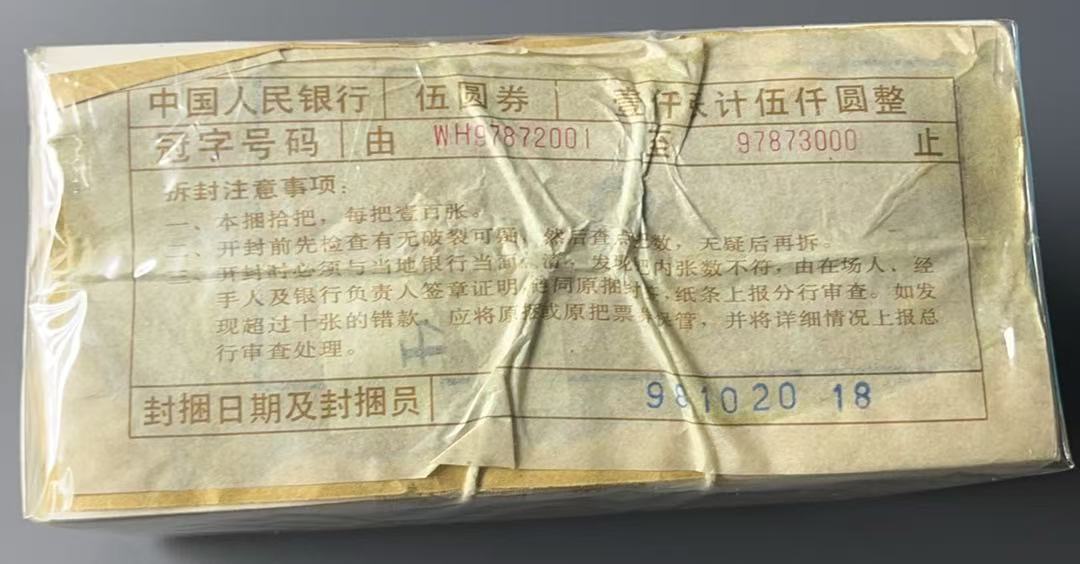 中国人民银行 伍圆券 壹仟张计伍仟圆整
冠字号码 由 WH97872001 至 97873000 止
拆封注意事项：
一、本捆拾把，每把壹百张。
二、开封前先检查有无破裂可疑，然后查点把数，无疑后再拆。
三、开封时必须与当地银行当面 ，发现把内张数不符，由在场人、经
手人及银行负责人签章证明，连同原捆封签，纸条上报分行审查。如发
现超过十张的错款，应将原捆或原把票券保管，并将详细情况上报总
行审查处理。
封捆日期及封捆员 981020 18